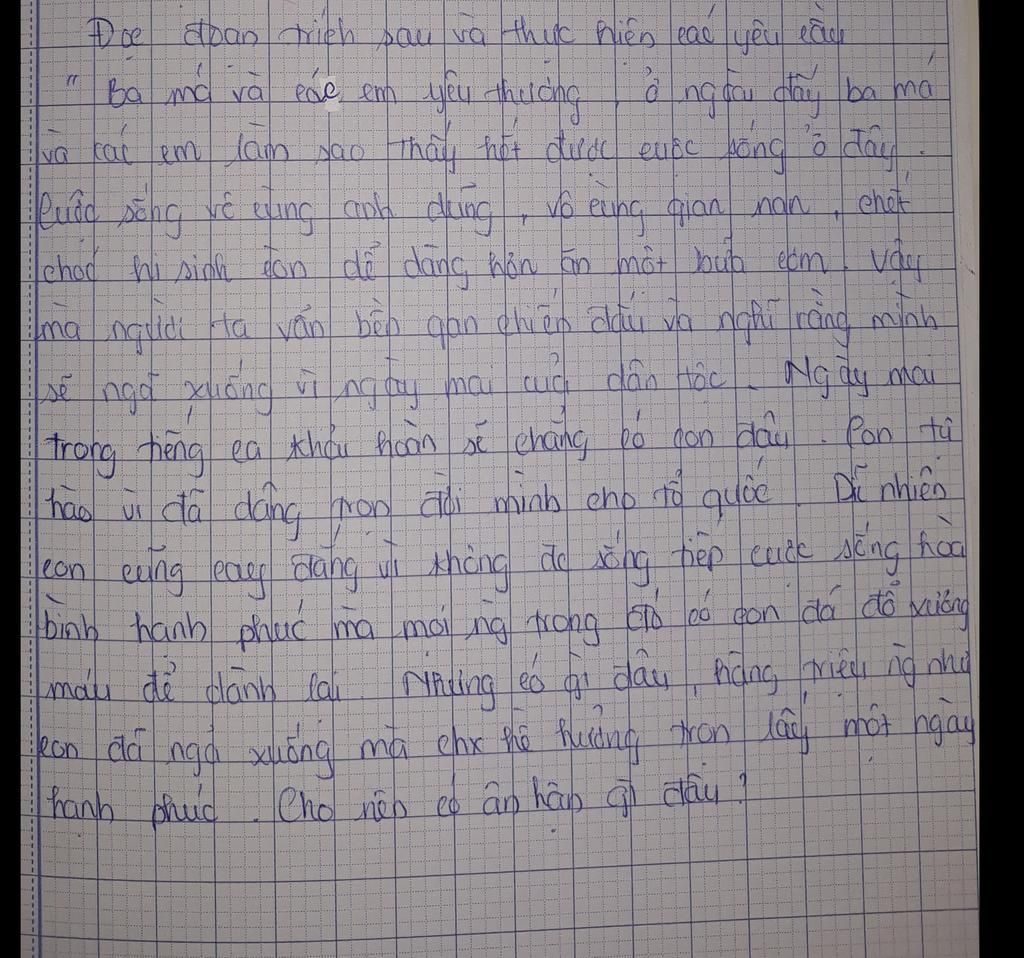 Đọc đoạn trích sau và thực hiện các yêu cầu
" Ba má và các em yêu thương, ở ngoài đấy ba má
và các em làm sao thấy hết được cuộc sống ở đây.
Cuộc sống vô cùng anh dũng, vô cùng gian nan, chết
chóc hi sinh còn dễ dàng hơn ăn một bữa cơm. Vậy
mà người ta vẫn bền gan chiến đấu và nghĩ rằng mình
sẽ ngã xuống vì ngày mai của dân tộc. Ngày mai
trong tiếng ca khải hoàn sẽ chẳng có con đâu. Con tự
hào vì đã dâng trọn đời mình cho tổ quốc. Dĩ nhiên
con cũng cay đắng vì không đc sống tiếp cuộc sống hoà
bình hạnh phúc mà mọi ng trong đó có con đã đổ xuống
máu để dành lại. Nhưng có gì đâu, hàng triệu ng như
con đã ngã xuống mà chx hề hưởng trọn lấy một ngày
hạnh phúc. Cho nên có ân hận gì đâu?